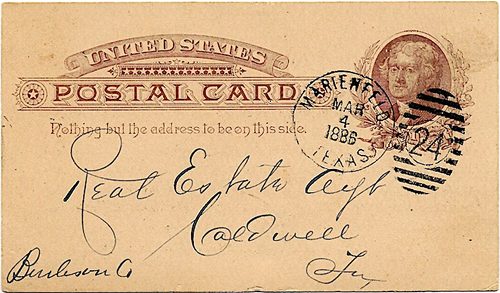 UNITED STATES
POSTAL CARD
Nothing but the address to be on this side.
MARIENFELD
MAR
4
1886
TEXAS
24
Real Estate Agt
Caldwell
Burleson Co
Tex